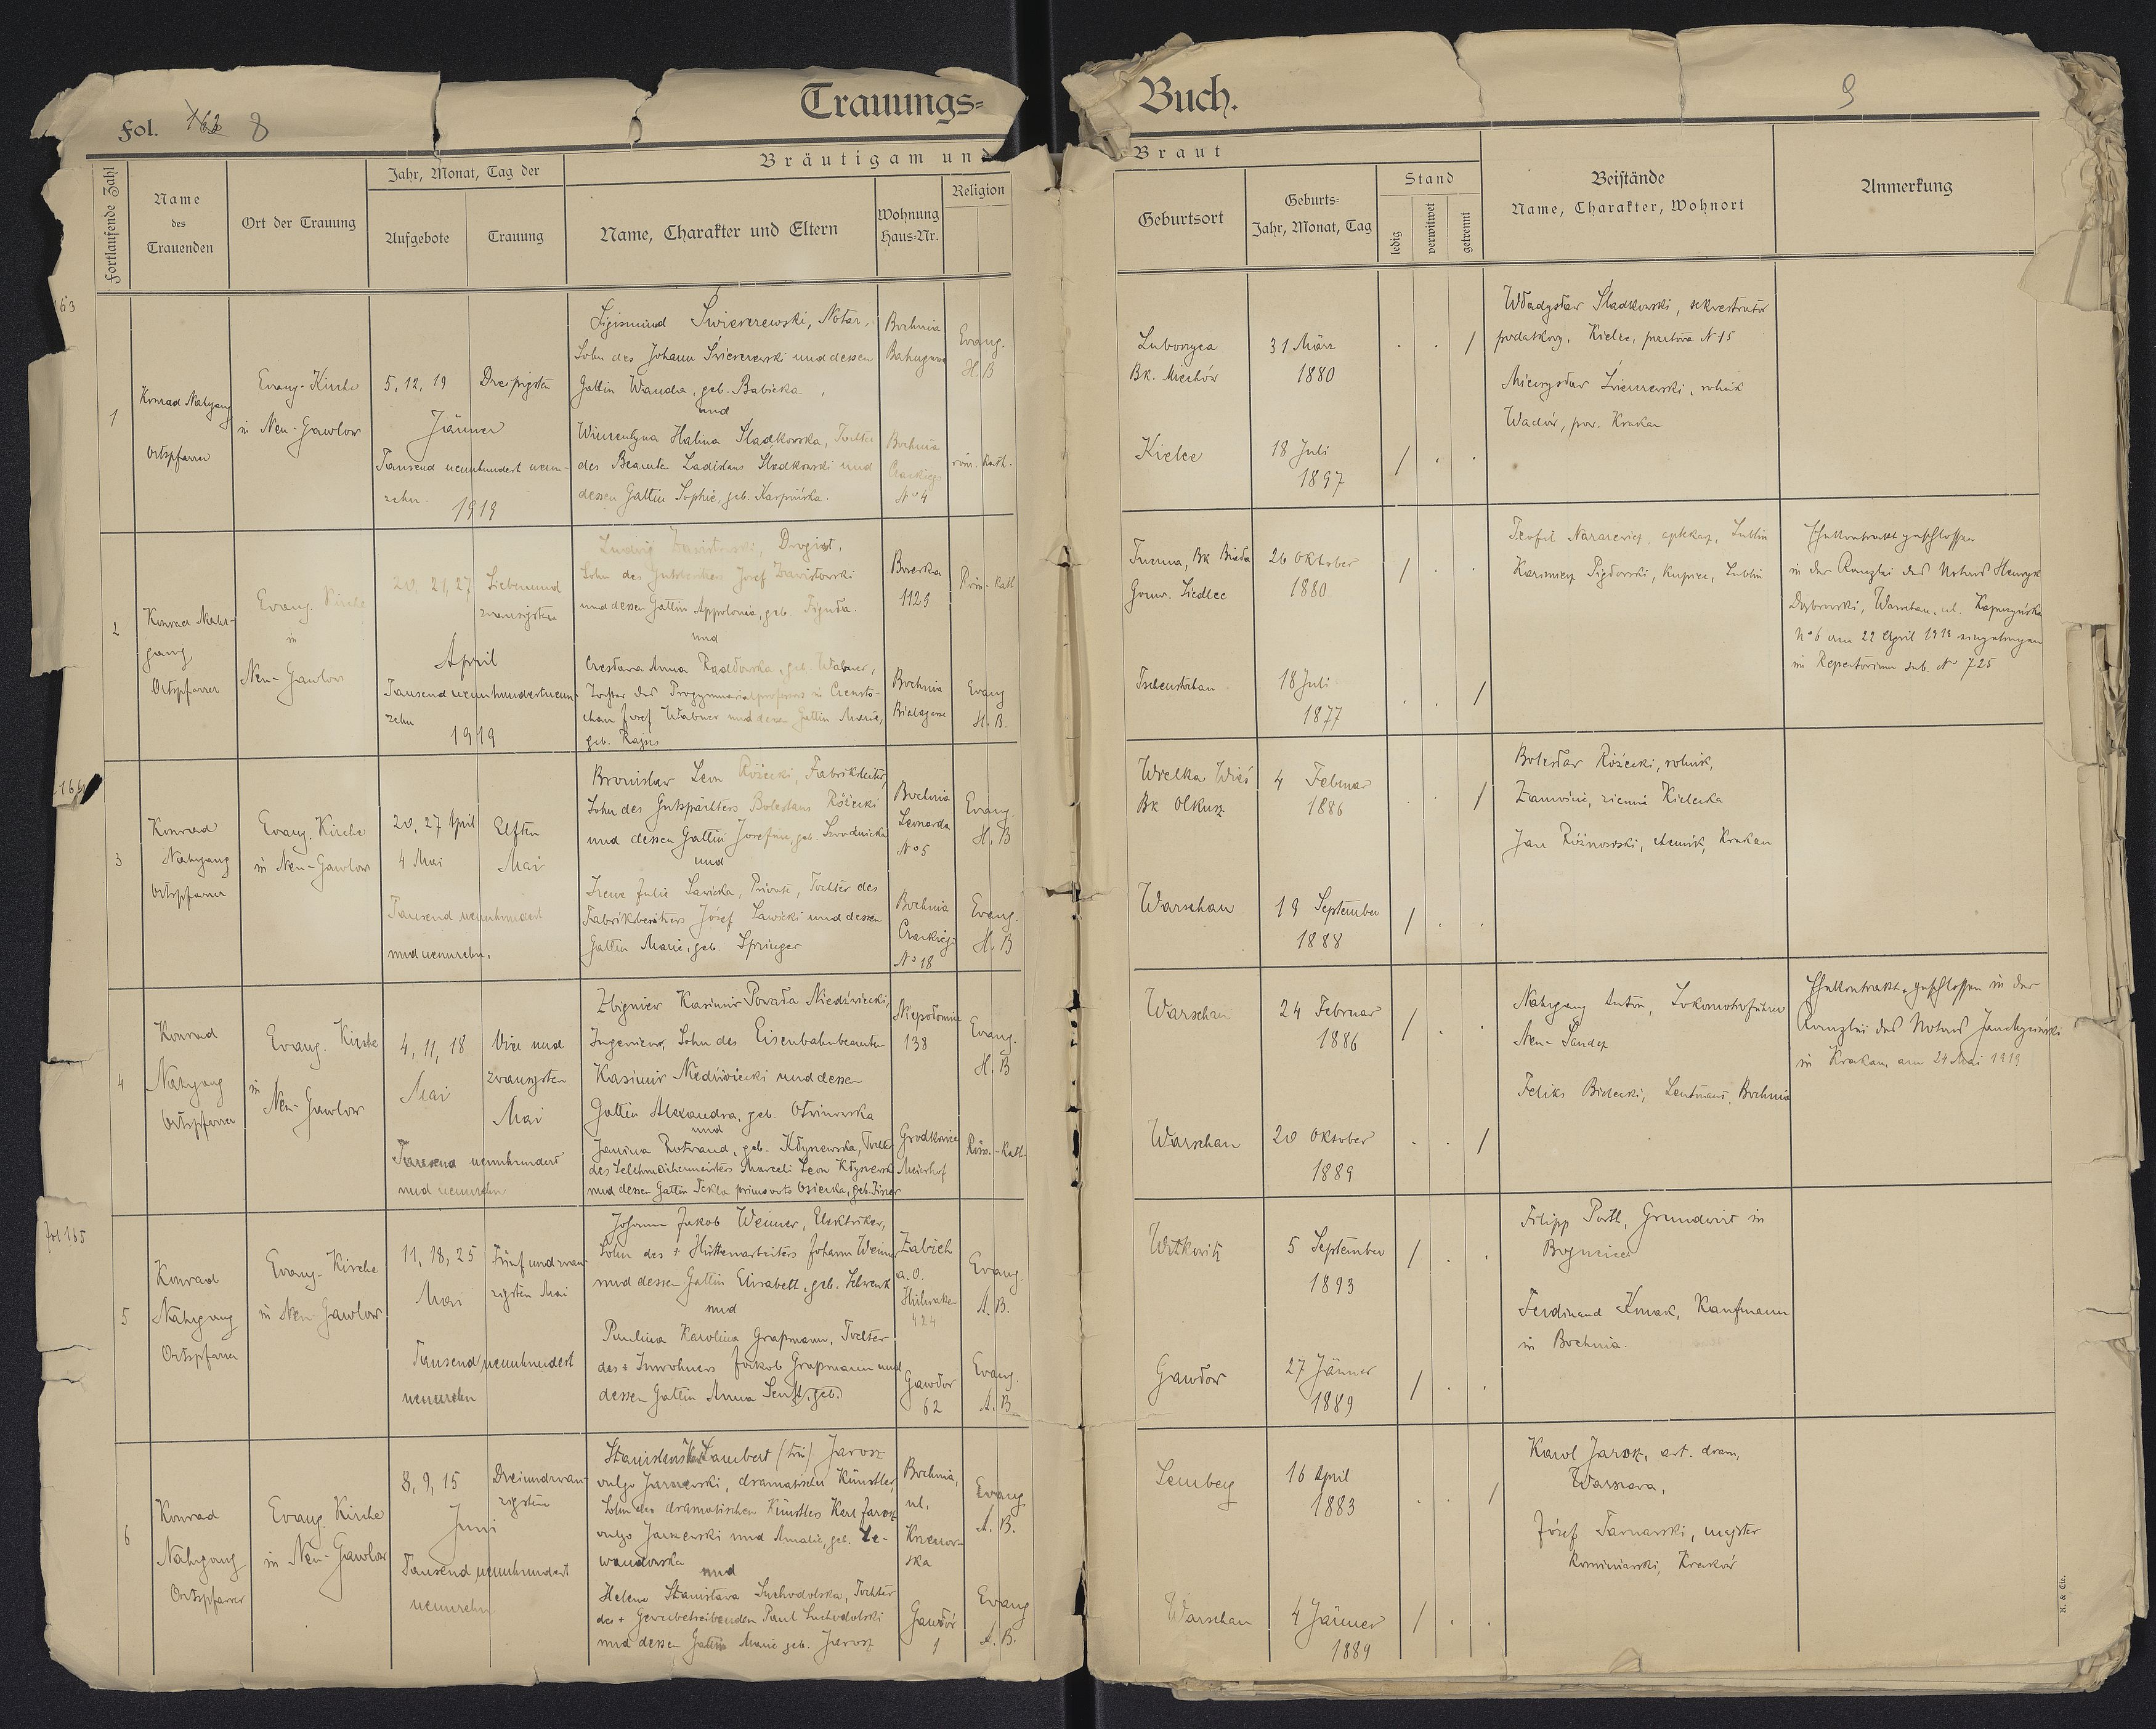 Trauungs=
Buch.
Fol. 162 8
9
Fortlaufende Zahl
Name
des
Trauenden
Ort der Trauung
Jahr, Monat, Tag der
Aufgebote
Trauung
Bräutigam und
Braut
Name, Charakter und Eltern
Wohnung
Haus=Nr.
Religion
Geburtsort
Geburts=
Jahr, Monat, Tag
Stand
ledig
verwitwet
getrennt
Beistände
Name, Charakter, Wohnort
Anmerkung
163
1
Konrad Nahrgang
Ortspfarrer
Evang. Kirche
in Neu-Gawlow
5, 12, 19
Jänner
Dreißigsten
Tausend neunhundert neun-
zehn.
1919
Sigismund Świerczewski, Notar,
Sohn des Johann Świerczewski und dessen
Gattin Wanda, geb. Babicka,
und
Wincentyna Halina Śladkowska, Tochter
des Beamte Ladislaus Śladkowski und
dessen Gattin Sophie, geb. Karpińska.
Bochnia
Evang.
H. B
Bochnia
No 4
röm. Kath.
Luborzyca
Bk. Miechów
31 März
1880
. . /
Kielce
18 Juli
1897
/ . .
Władysław Śladkowski, sekwestrator
podatkowy, Kielce, No 15
Mieczysław Świerczewski, rolnik
Wadów, pow. Krakau
2
Konrad Nahr-
gang
Ortspfarrer
Evang. Kirche
in
Neu-Gawlow
20, 21, 27
Siebenund
zwanzigsten
April
Tausend neunhundertneun-
zehn
1919
Ludwig Zawistowski, Drogist,
Sohn des Josef Zawistowski
und dessen Gattin Appolonia, geb.
und
Czesława Anna Radłowska, geb. Wabner,
Tochter des Progymnasialprofessors in Czensto-
chau Josef Wabner und dessen Gattin Marie,
geb. Rajss
1129
Röm.-Kath
Bochnia
Bialagasse
Evang
H. B.
Gouv. Siedlce
26 Oktober
1880
/ . .
Tschenstochau
18 Juli
1877
. . /
Teofil Nazarewicz, aptekarz, Lublin
Kazimierz Pigłowski, kupiec, Lublin
Ehekontrakt geschlossen
in der Kanzlei des Notars Henryk
Dąbrowski, Warschau, ul. Kapucyńska
No 6 am 22 April 1919 eingetragen
im Repertorium sub. No 725
164
3
Konrad
Nahrgang
Ortspfarrer
Evang. Kirche
in Neu-Gawlow
20, 27 April
4 Mai
Elften
Mai
Tausend neunhundert
und neunzehn.
Bronislaw Leon Różecki, Fabriksleiter,
Sohn des Gutspächters Boleslaus Różecki
und dessen Gattin Josefine, geb.
und
Irene Julie Sawicka, Private, Tochter des
Fabrikbesitzers Józef Sawicki und dessen
Gattin Marie, geb. Springer
Bochnia
Leonarda
No 5
Evang.
H. B
Bochnia
No 18
Evang.
H. B
Wielka Wieś
Bk Olkusz
4 Februar
1886
. . /
Warschau
19 September
1888
/ . .
Bolesław Różecki, rolnik,
ziemia Kielecka
Jan Różnowski, chemik, Krakau
4
Konrad
Nahrgang
Ortspfarrer
Evang. Kirche
in
Neu-Gawlow
4, 11, 18
Mai
Vier und
zwanzigsten
Mai
Tausend neunhundert
und neunzehn
Zbigniew Kasimir Porada Niedźwiecki,
Ingenieur, Sohn des Eisenbahnbeamten
Kasimir Niedźwiecki und dessen
Gattin Alexandra, geb. Otwinowska
und
Janina Rotwand, geb. Kłyszewska, Tochter
des Marceli Leon
und dessen Gattin Tekla primovoto Osiecka, geb.
Niepołomice
138
Evang.
H. B
Grodkowice
Meierhof
Röm.-Kath.
Warschau
24 Februar
1886
/ . .
Warschau
20 Oktober
1889
. . /
Nahrgang Anton, Lokomotivführer
Neu-Sandez
Feliks Bielecki, Leutnant, Bochnia
Ehekontrakt geschlossen in der
Kanzlei des Notars
in Krakau, am 24 Mai 1919
fol 165
5
Konrad
Nahrgang
Ortspfarrer
Evang. Kirche
in Neu-Gawlow
11, 18, 25
Mai
Fünfundzwan
zigsten Mai
Tausend neunhundert
neunzehn
Johann Jakob Weimer, Elektriker,
Sohn des + Hüttenarbeiters Johann Weimer
und dessen Gattin Elisabeth, geb. Schwenk
und
Paulina Karolina Graßmann, Tochter
des + Inwohners Jakob Graßmann und
dessen Gattin Anna Senft, (geb.)
Zabłoch
a. O.
424
Evang.
A. B.
Gawłów
62
Evang.
A. B
Witkowitz
5 September
1893
/ . .
Gawłow
27 Jänner
1889
/ . .
Filipp Portl, Grundwirt in
Bogucice
Ferdinand Kmak, Kaufmann
in Bochnia.
6
Konrad
Nahrgang
Ortspfarrer
Evang. Kirche
in Neu-Gawlow
8, 9, 15
Juni
Dreiundzwan
zigsten
Tausend neunhundert
neunzehn
Lambert (tri) Jarosz
vulgo Jaraczewski, dramatischer Künstler,
Sohn des dramatischen Künstlers Karl Jarosz
vulgo und Amalie, geb. Le-
wandowska
und
Helene Stanisława Suchodolska, Tochter
des + Gewerbetreibenden Paul Suchodolski
und dessen Gattin Marie geb. Jarosz
Bochnia,
ul.
Evang
A. B.
Gawłów
1
Evang
A. B.
Lemberg
16 April
1883
. . /
Warschau
4 Jänner
1889
/ . .
Karol Jarosz, art. dram,
Warszawa,
Józef Tarnawski, majster
kominiarski, Kraków
K. & Cie.